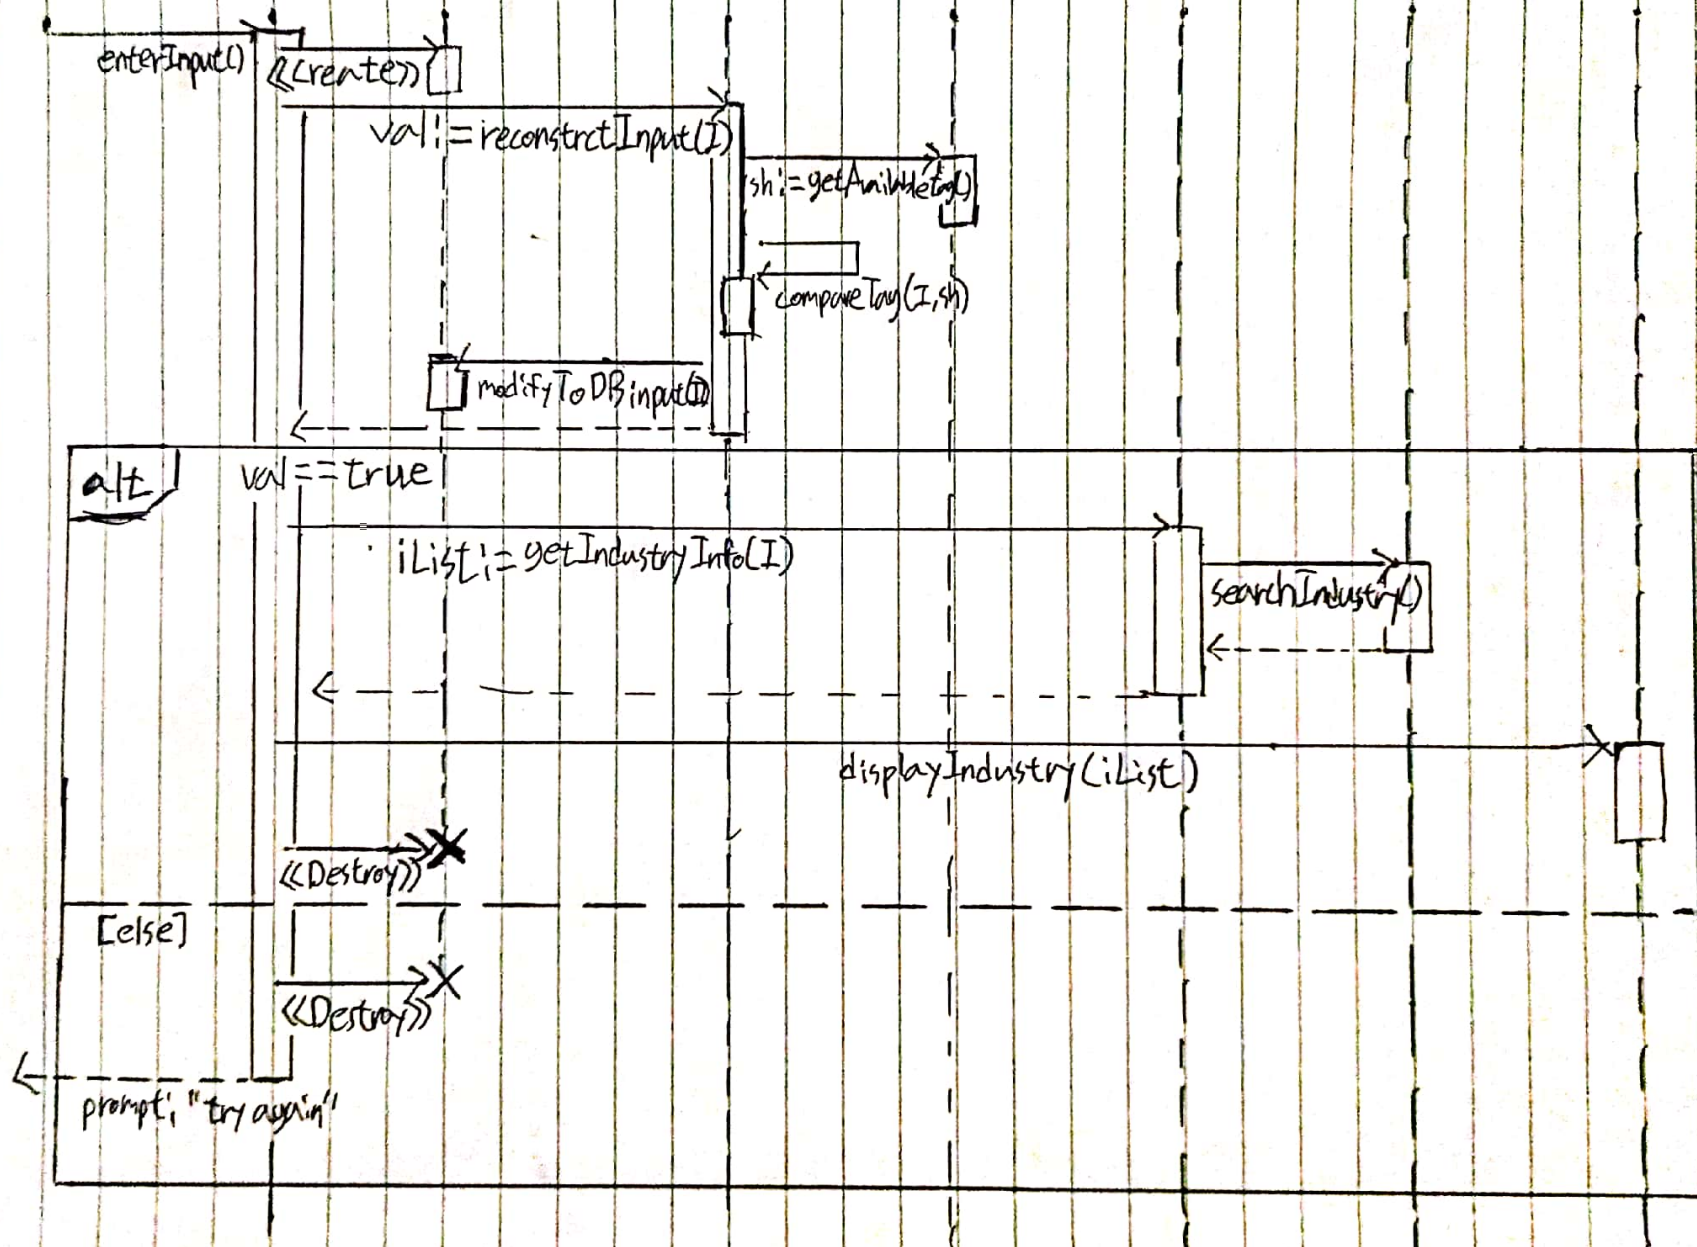 enterInput()
<<create>>
val:=reconstrctInput(I)
sh:=getAvailableTag()
compareTag(I,sh)
modifyToDBinput(I)
alt
val==true
iList:=getIndustryInfo(I)
searchIndustry()
displayIndustry(iList)
<<Destroy>>
[else]
<<Destroy>>
prompt: "try again"